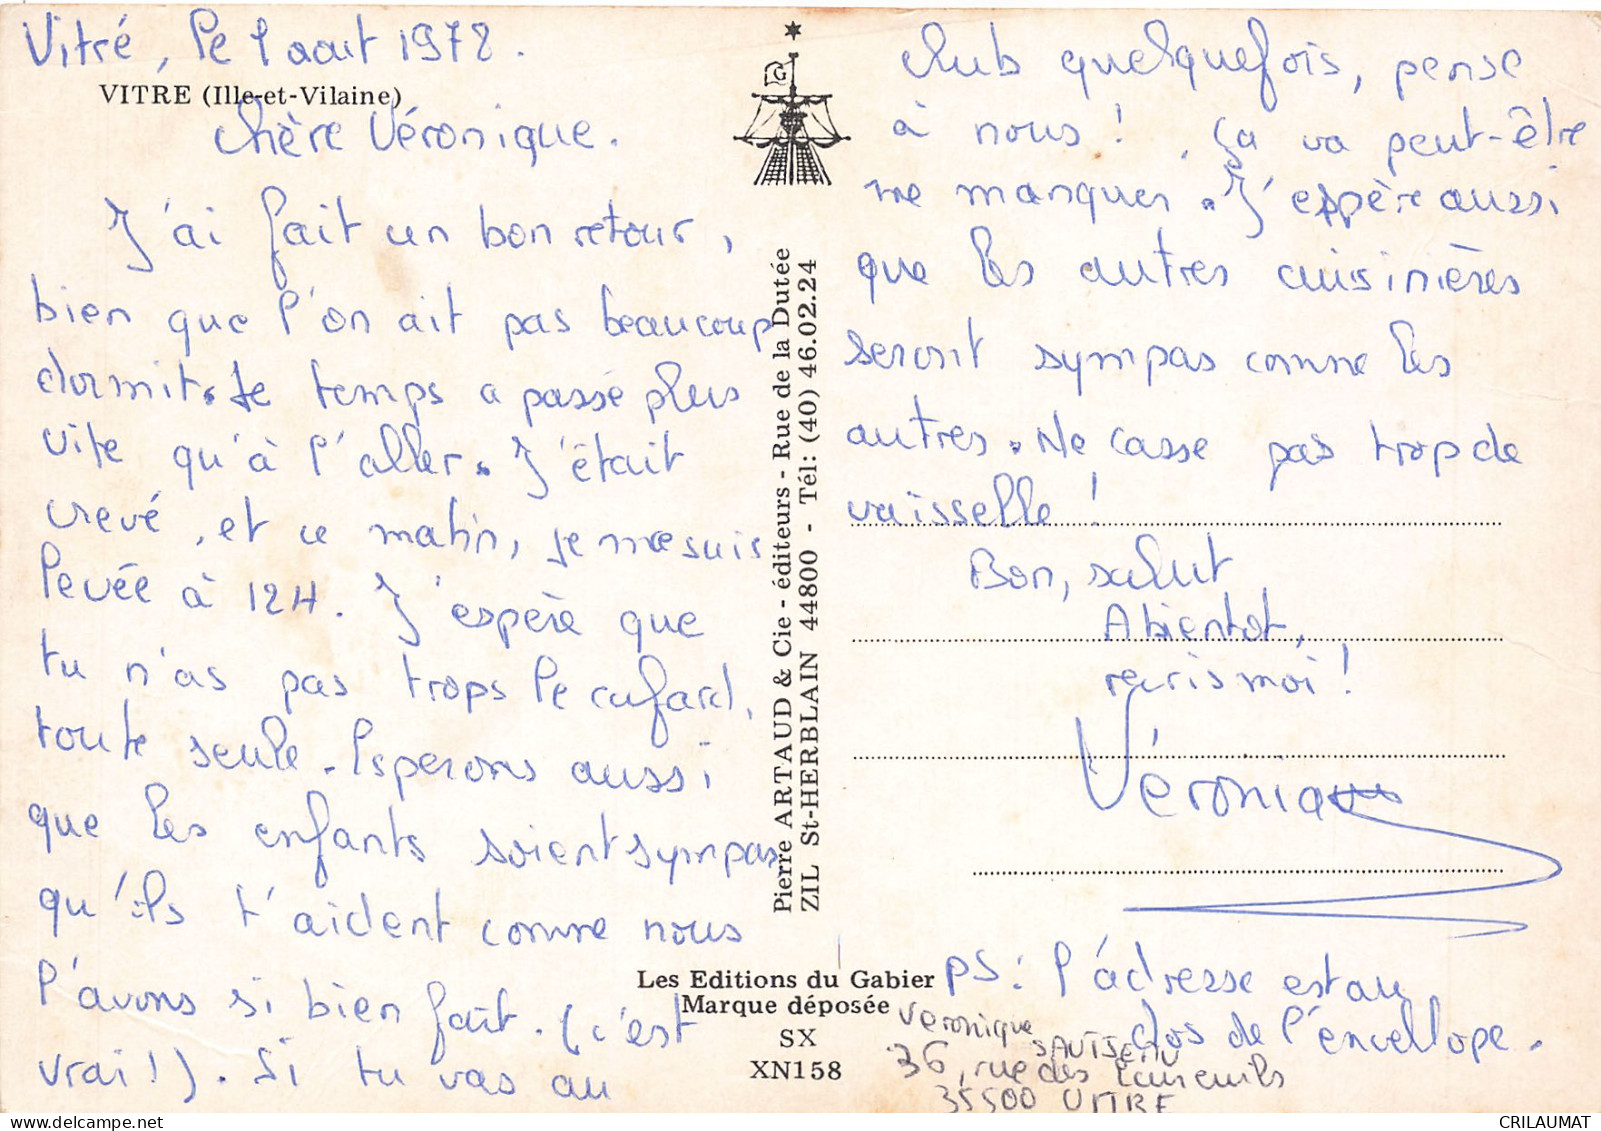 Vitré, le 1 aout 1978.
VITRE (Ille-et-Vilaine)
chère Véronique.
J'ai fait un bon retour,
bien que l'on ait pas beaucoup
dormit. Le temps a passé plus
vite qu'à l'aller. J'était
crevé, et ce matin, je me suis
levée à 12H. J'espère que
tu n'as pas trops le cafard,
toute seule. Esperons aussi
que les enfants soient sympas
qu'ils t'aident comme nous
l'avons si bien fait. (c'est
vrai!). Si tu vas au
club quelquefois, pense
à nous! ça va peut-être
me manquer. J'espère aussi
que les autres cuisinières
seront sympas comme les
autres. Ne casse pas trop de
vaisselle!
Bon, salut
A bientot,
recris moi!
Véronique
PS: l'adresse est au
dos de l'envellope.
Veronique
36, rue des
35500 VITRE
G
Pierre ARTAUD & Cie - éditeurs - Rue de la Dutée
ZIL St-HERBLAIN 44800 - Tél: (40) 46.02.24
Les Editions du Gabier
Marque déposée
SX
XN158
CRILAUMAT